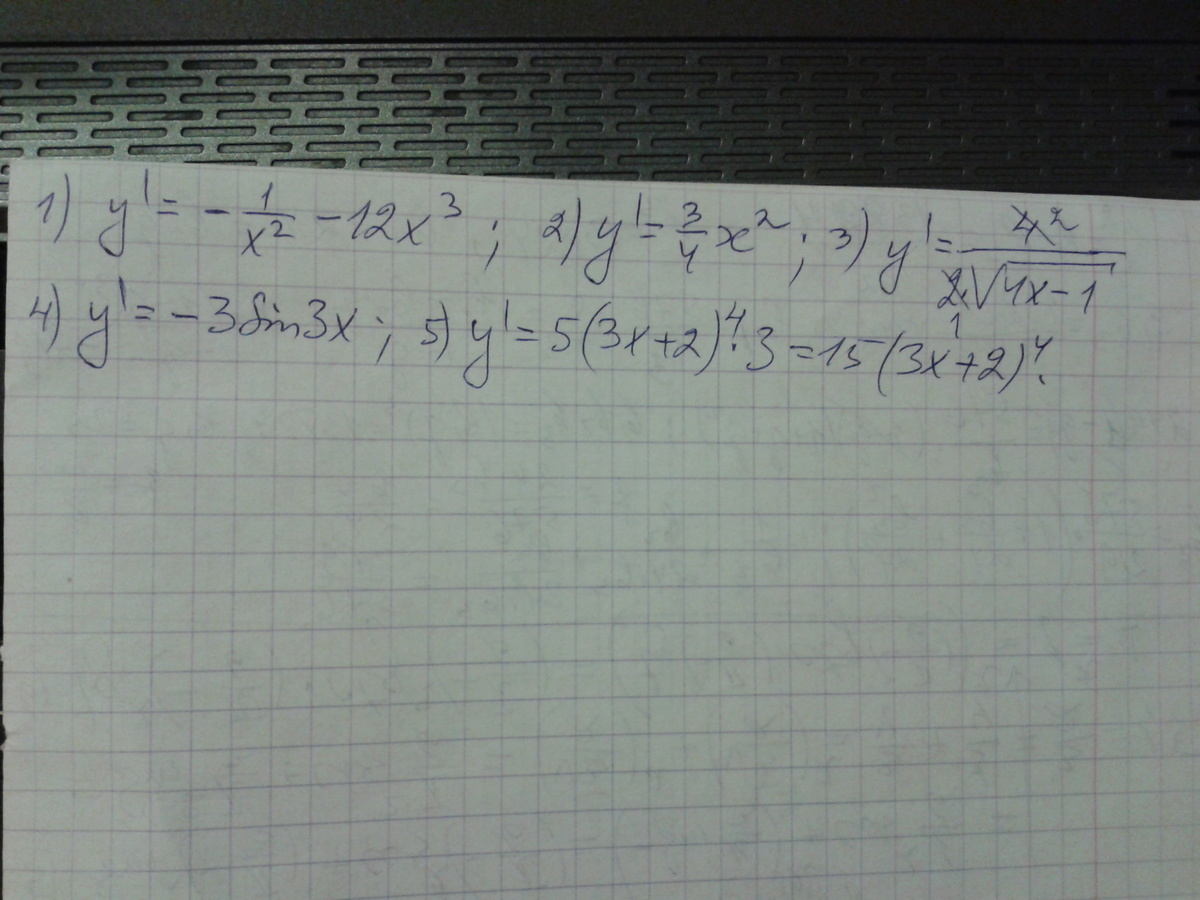 1) y' = - 1/x² - 12x³ ; 2) y' = 3/4 x² ; 3) y' = 4̸ ² / 2̸ ₁ √(4x-1)
4) y' = -3 sin 3x ; 5) y' = 5(3x+2)⁴ · 3 = 15(3x+2)⁴.